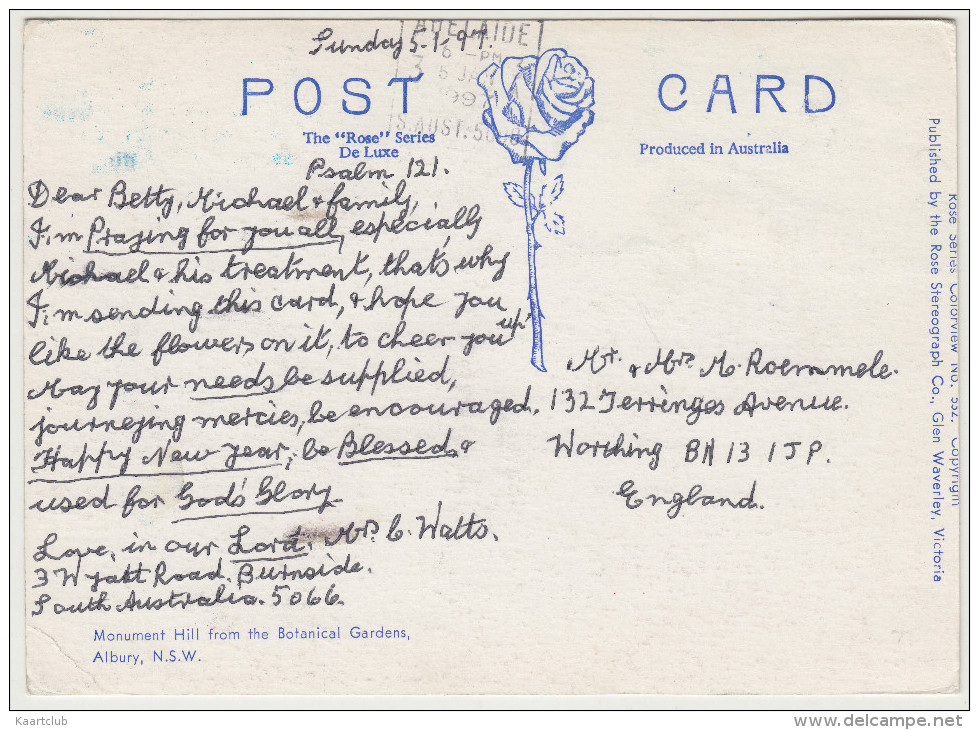 Sunday 5-1-97.
ADELAIDE
6 -PM
S. AUST. 50
POST CARD
The "Rose" Series
De Luxe
Produced in Australia
Psalm 121.
Dear Betty, Michael & family,
I'm Praying for you all, especially
Michael & his treatment, that's why
I'm sending this card, & hope you
like the flowers on it, to cheer you up.
May your needs be supplied,
journeying mercies, be encouraged.
Happy New Year, be Blessed &
used for God's Glory
Love, in our Lord, Mrs C. Watts.
3 Wyatt Road. Burnside.
South Australia. 5066.
Monument Hill from the Botanical Gardens,
Albury, N.S.W.
Mr. & Mrs M. Roemmele.
132 Terringes Avenue.
Worthing BN 13 1JP.
England.
Rose Series Colorview No. 532, Copyright
Published by the Rose Stereograph Co., Glen Waverley, Victoria
Kaartclub
www.delcampe.net